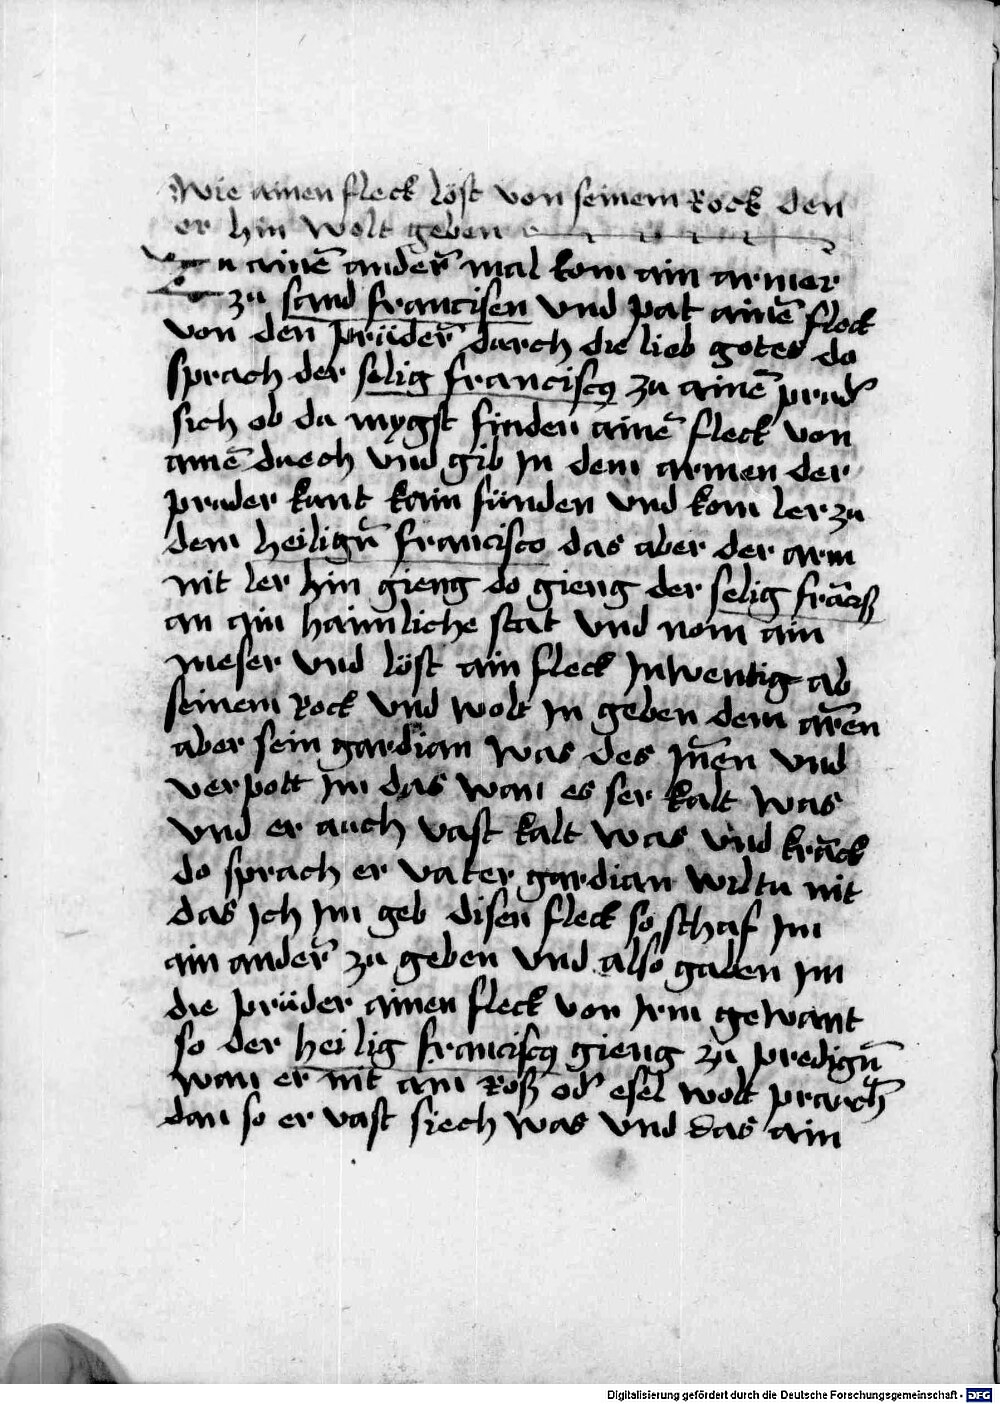 Wie ainen fleck löst von seinem Rock den
er hin wolt geben
Zu ainē anderñ mal kom ain armer
zu sand francisen vnd pat ainē fleck
von den prüderñ durch die lieb gotes do
sprach der selig franciscꝰ zu ainē prud̾
sich ob du mygst finden ainē fleck von
ainē duech vnd gib in dem armen der
pruder kunt kain fünden vnd kom ler zu
dem heiligñ francisco das aber der arm
nit ler hin gieng do gieng der selig frācisß
an ain haimliche stat vnd nom ain
meser vnd löst ain fleck Inwentig ab
seinem Rock vnd wolt In geben dem arm̄en
aber sein gardian was des Inn̄en vnd
verpott Im das wan es ser kalt was
vnd er auch vast kalt was vnd krāck
do sprach er vater gardian wiltu nit
das Ich Im geb disen fleck so schaf Im
ain anderñ zu geben vnd also gaben Im
die prüder ainen fleck von Irm gewant
so der heilig franciscꝰ gieng zu predigñ
wan er nit ain Roß od̾ esel wolt prauch̄
dan so er vast siech was vnd das ain
Digitalisierung gefördert durch die Deutsche Forschungsgemeinschaft - DFG